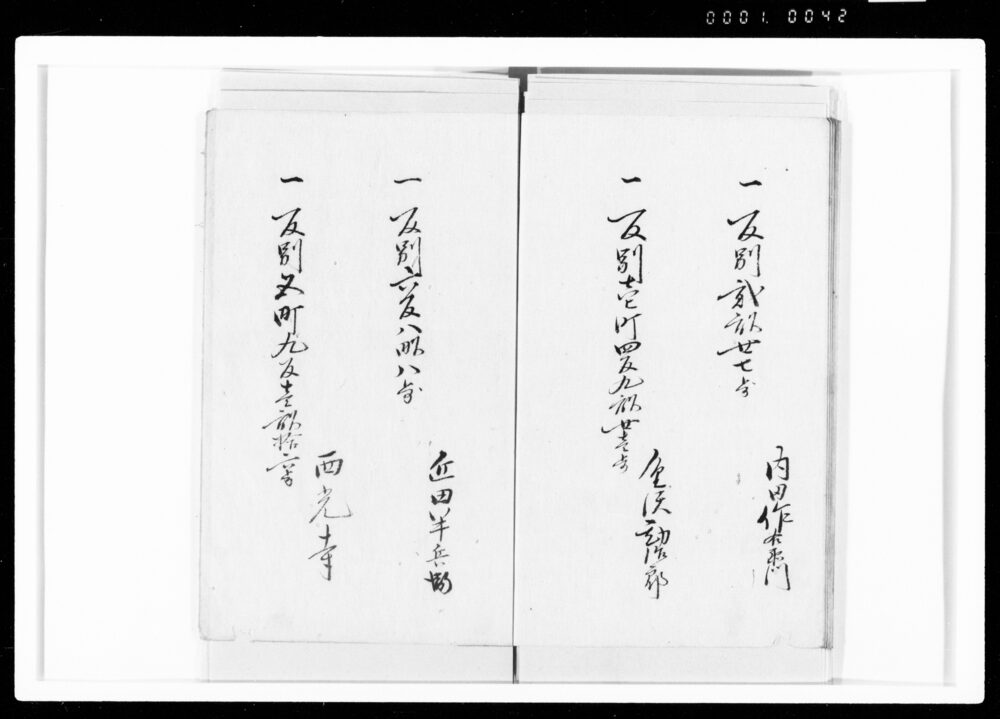 0001. 0042
一 反別弐畝廿七歩
内田作右衛門
一 反別壱町四反九畝廿壱歩
治郎
一 反別六反八畝八歩
近田半兵衛
一 反別五町九反壱畝拾六歩
西光寺